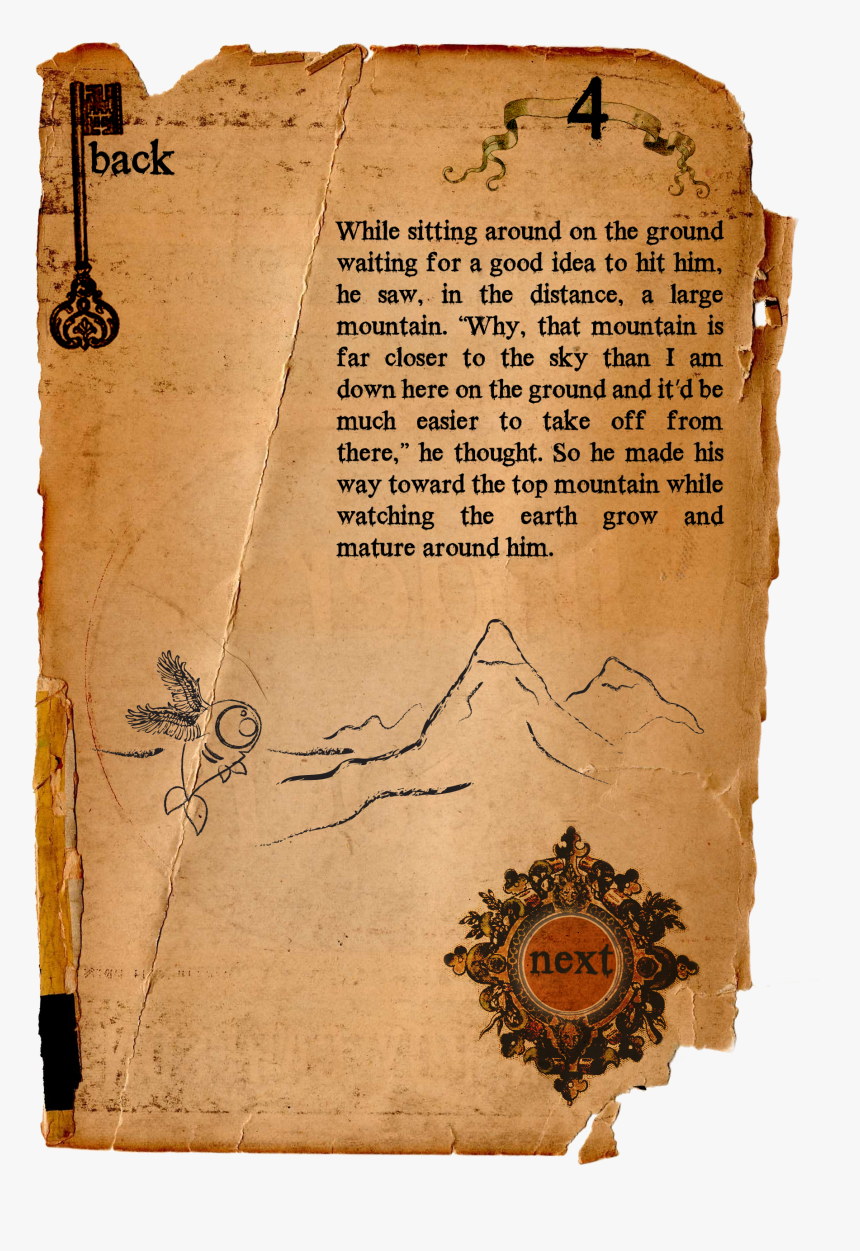 4
back
While sitting around on the ground
waiting for a good idea to hit him,
he saw, in the distance, a large
mountain. “Why, that mountain is
far closer to the sky than I am
down here on the ground and it'd be
much easier to take off from
there,” he thought. So he made his
way toward the top mountain while
watching the earth grow and
mature around him.
next